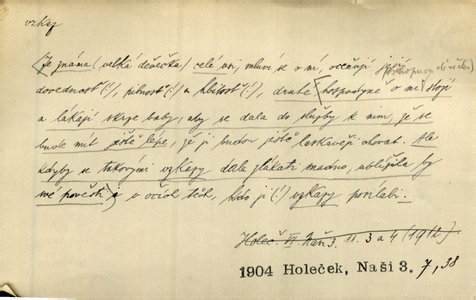 vzkaz
(Je známa (velká děvečka) celé vsi, mluví se o ní, oceňují
dovednost (!), pilnost (!) a hbitost (!), druhé (hospodyně o ni) stojí
a lákají skrze baby, aby se dala do služby k nim, že se
bude mít ještě lépe, že ji budou ještě laskavěji chovat. Ale
kdyby se takovými vzkazy dala zlákati snadno, ublížila by
své pověsti i v očích těch, kdo jí (!) vzkazy posílali.
Holeč. VI Naši 3. 11. 3 a 4 (1912).
1904 Holeček, Naši 3. 7, 38